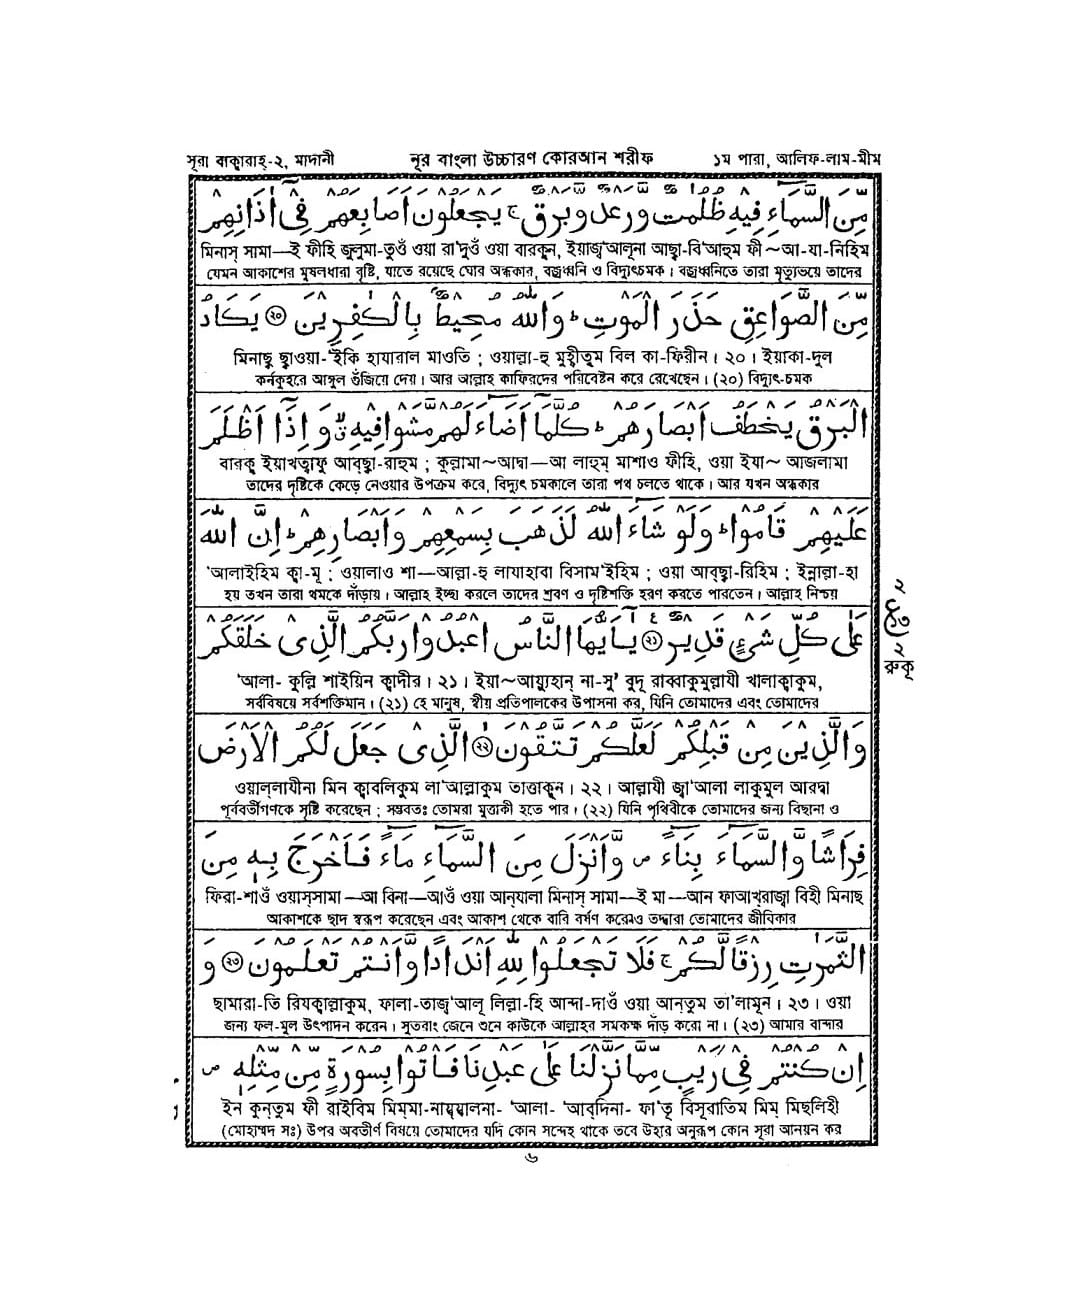 সূরা বাক্বারাহ-২, মাদানী নূর বাংলা উচ্চারণ কোরআন শরীফ ১ম পারা, আলিফ-লাম-মীম
مِّنَ السَّمَآءِ فِيْهِ ظُلُمٰتٌ وَّرَعْدٌ وَّبَرْقٌ ج يَجْعَلُوْنَ اَصَابِعَهُمْ فِىْٓ اٰذَانِهِمْ
মিনাস্ সামা—ই ফীহি জুলুমা-তুওঁ ওয়া রা'দুওঁ ওয়া বারকুন, ইয়াজ্ব'আলূনা আছ্বা-বি'আহুম ফী ~আ-যা-নিহিম
যেমন আকাশের মুষলধারা বৃষ্টি, যাতে রয়েছে ঘোর অন্ধকার, বজ্রধ্বনি ও বিদ্যুৎচমক। বজ্রধ্বনিতে তারা মৃত্যুভয়ে তাদের
مِّنَ الصَّوَاعِقِ حَذَرَ الْمَوْتِ ط وَاللّٰهُ مُحِيْطٌۢ بِالْكٰفِرِيْنَ ۝٢٠ يَكَادُ
মিনাছ্ ছ্বাওয়া-'ইকি হাযারাল মাওতি ; ওয়াল্লা-হু মুহ্বীতুম বিল কা-ফিরীন। ২০। ইয়াকা-দুল
কর্নকুহরে আঙ্গুল গুঁজিয়ে দেয়। আর আল্লাহ কাফিরদের পরিবেষ্টন করে রেখেছেন। (২০) বিদ্যুৎ-চমক
الْبَرْقُ يَخْطَفُ اَبْصَارَهُمْ ط كُلَّمَآ اَضَآءَ لَهُمْ مَّشَوْا فِيْهِ ق وَاِذَآ اَظْلَمَ
বারকু ইয়াখত্বাফু আব্ছ্বা-রাহুম ; কুল্লামা~আদ্বা—আ লাহুম্ মাশাও ফীহি, ওয়া ইযা~ আজলামা
তাদের দৃষ্টিকে কেড়ে নেওয়ার উপক্রম করে, বিদ্যুৎ চমকালে তারা পথ চলতে থাকে। আর যখন অন্ধকার
عَلَيْهِمْ قَامُوْا ط وَلَوْ شَآءَ اللّٰهُ لَذَهَبَ بِسَمْعِهِمْ وَاَبْصَارِهِمْ ط اِنَّ اللّٰهَ
'আলাইহিম ক্বা-মূ ; ওয়ালাও শা—আল্লা-হু লাযাহাবা বিসাম'ইহিম ; ওয়া আব্ছ্বা-রিহিম ; ইন্নাল্লা-হা
হয় তখন তারা থমকে দাঁড়ায়। আল্লাহ ইচ্ছা করলে তাদের শ্রবণ ও দৃষ্টিশক্তি হরণ করতে পারতেন। আল্লাহ নিশ্চয়
২
ع৩
২
রুকূ
عَلٰى كُلِّ شَىْءٍ قَدِيْرٌ ۝٢١ يٰٓاَيُّهَا النَّاسُ اعْبُدُوْا رَبَّكُمُ الَّذِىْ خَلَقَكُمْ
'আলা- কুল্লি শাইয়িন ক্বাদীর। ২১। ইয়া~আয়্যুহান্ না-সু' বুদূ রাব্বাকুমুল্লাযী খালাক্বাকুম,
সর্ববিষয়ে সর্বশক্তিমান। (২১) হে মানুষ, স্বীয় প্রতিপালকের উপাসনা কর, যিনি তোমাদের এবং তোমাদের
وَالَّذِيْنَ مِنْ قَبْلِكُمْ لَعَلَّكُمْ تَتَّقُوْنَ ۝٢٢ الَّذِىْ جَعَلَ لَكُمُ الْاَرْضَ
ওয়াল্‌লাযীনা মিন ক্বাবলিকুম লা'আল্লাকুম তাত্তাকূন। ২২। আল্লাযী জ্বা'আলা লাকুমুল আরদ্বা
পূর্ববর্তীগণকে সৃষ্টি করেছেন ; সম্ভবতঃ তোমরা মুত্তাকী হতে পার। (২২) যিনি পৃথিবীকে তোমাদের জন্য বিছানা ও
فِرَاشًا وَّالسَّمَآءَ بِنَآءً ص وَّاَنْزَلَ مِنَ السَّمَآءِ مَآءً فَاَخْرَجَ بِهٖ مِنَ
ফিরা-শাওঁ ওয়াস্সামা—আ বিনা—আওঁ ওয়া আন্যালা মিনাস্ সামা—ই মা—আন ফাআখ্রাজ্বা বিহী মিনাছ
আকাশকে ছাদ স্বরূপ করেছেন এবং আকাশ থেকে বারি বর্ষণ করেও তদ্দ্বারা তোমাদের জীবিকার
الثَّمَرٰتِ رِزْقًا لَّكُمْ ج فَلَا تَجْعَلُوْا لِلّٰهِ اَنْدَادًا وَّاَنْتُمْ تَعْلَمُوْنَ ۝٢٣ وَ
ছামারা-তি রিযক্বাল্লাকুম, ফালা-তাজ্ব'আলূ লিল্লা-হি আন্দা-দাওঁ ওয়া আন্তুম তা'লামূন। ২৩। ওয়া
জন্য ফল-মূল উৎপাদন করেন। সুতরাং জেনে শুনে কাউকে আল্লাহর সমকক্ষ দাঁড় করো না। (২৩) আমার বান্দার
اِنْ كُنْتُمْ فِىْ رَيْبٍ مِّمَّا نَزَّلْنَا عَلٰى عَبْدِنَا فَاْتُوْا بِسُوْرَةٍ مِّنْ مِّثْلِهٖ ص
ইন কুন্তুম ফী রাইবিম মিম্মা-নায্যালনা- 'আলা- 'আব্দিনা- ফা'তূ বিসূরাতিম মিম্ মিছলিহী
(মোহাম্মদ সঃ) উপর অবতীর্ণ বিষয়ে তোমাদের যদি কোন সন্দেহ থাকে তবে উহার অনুরূপ কোন সূরা আনয়ন কর
৬